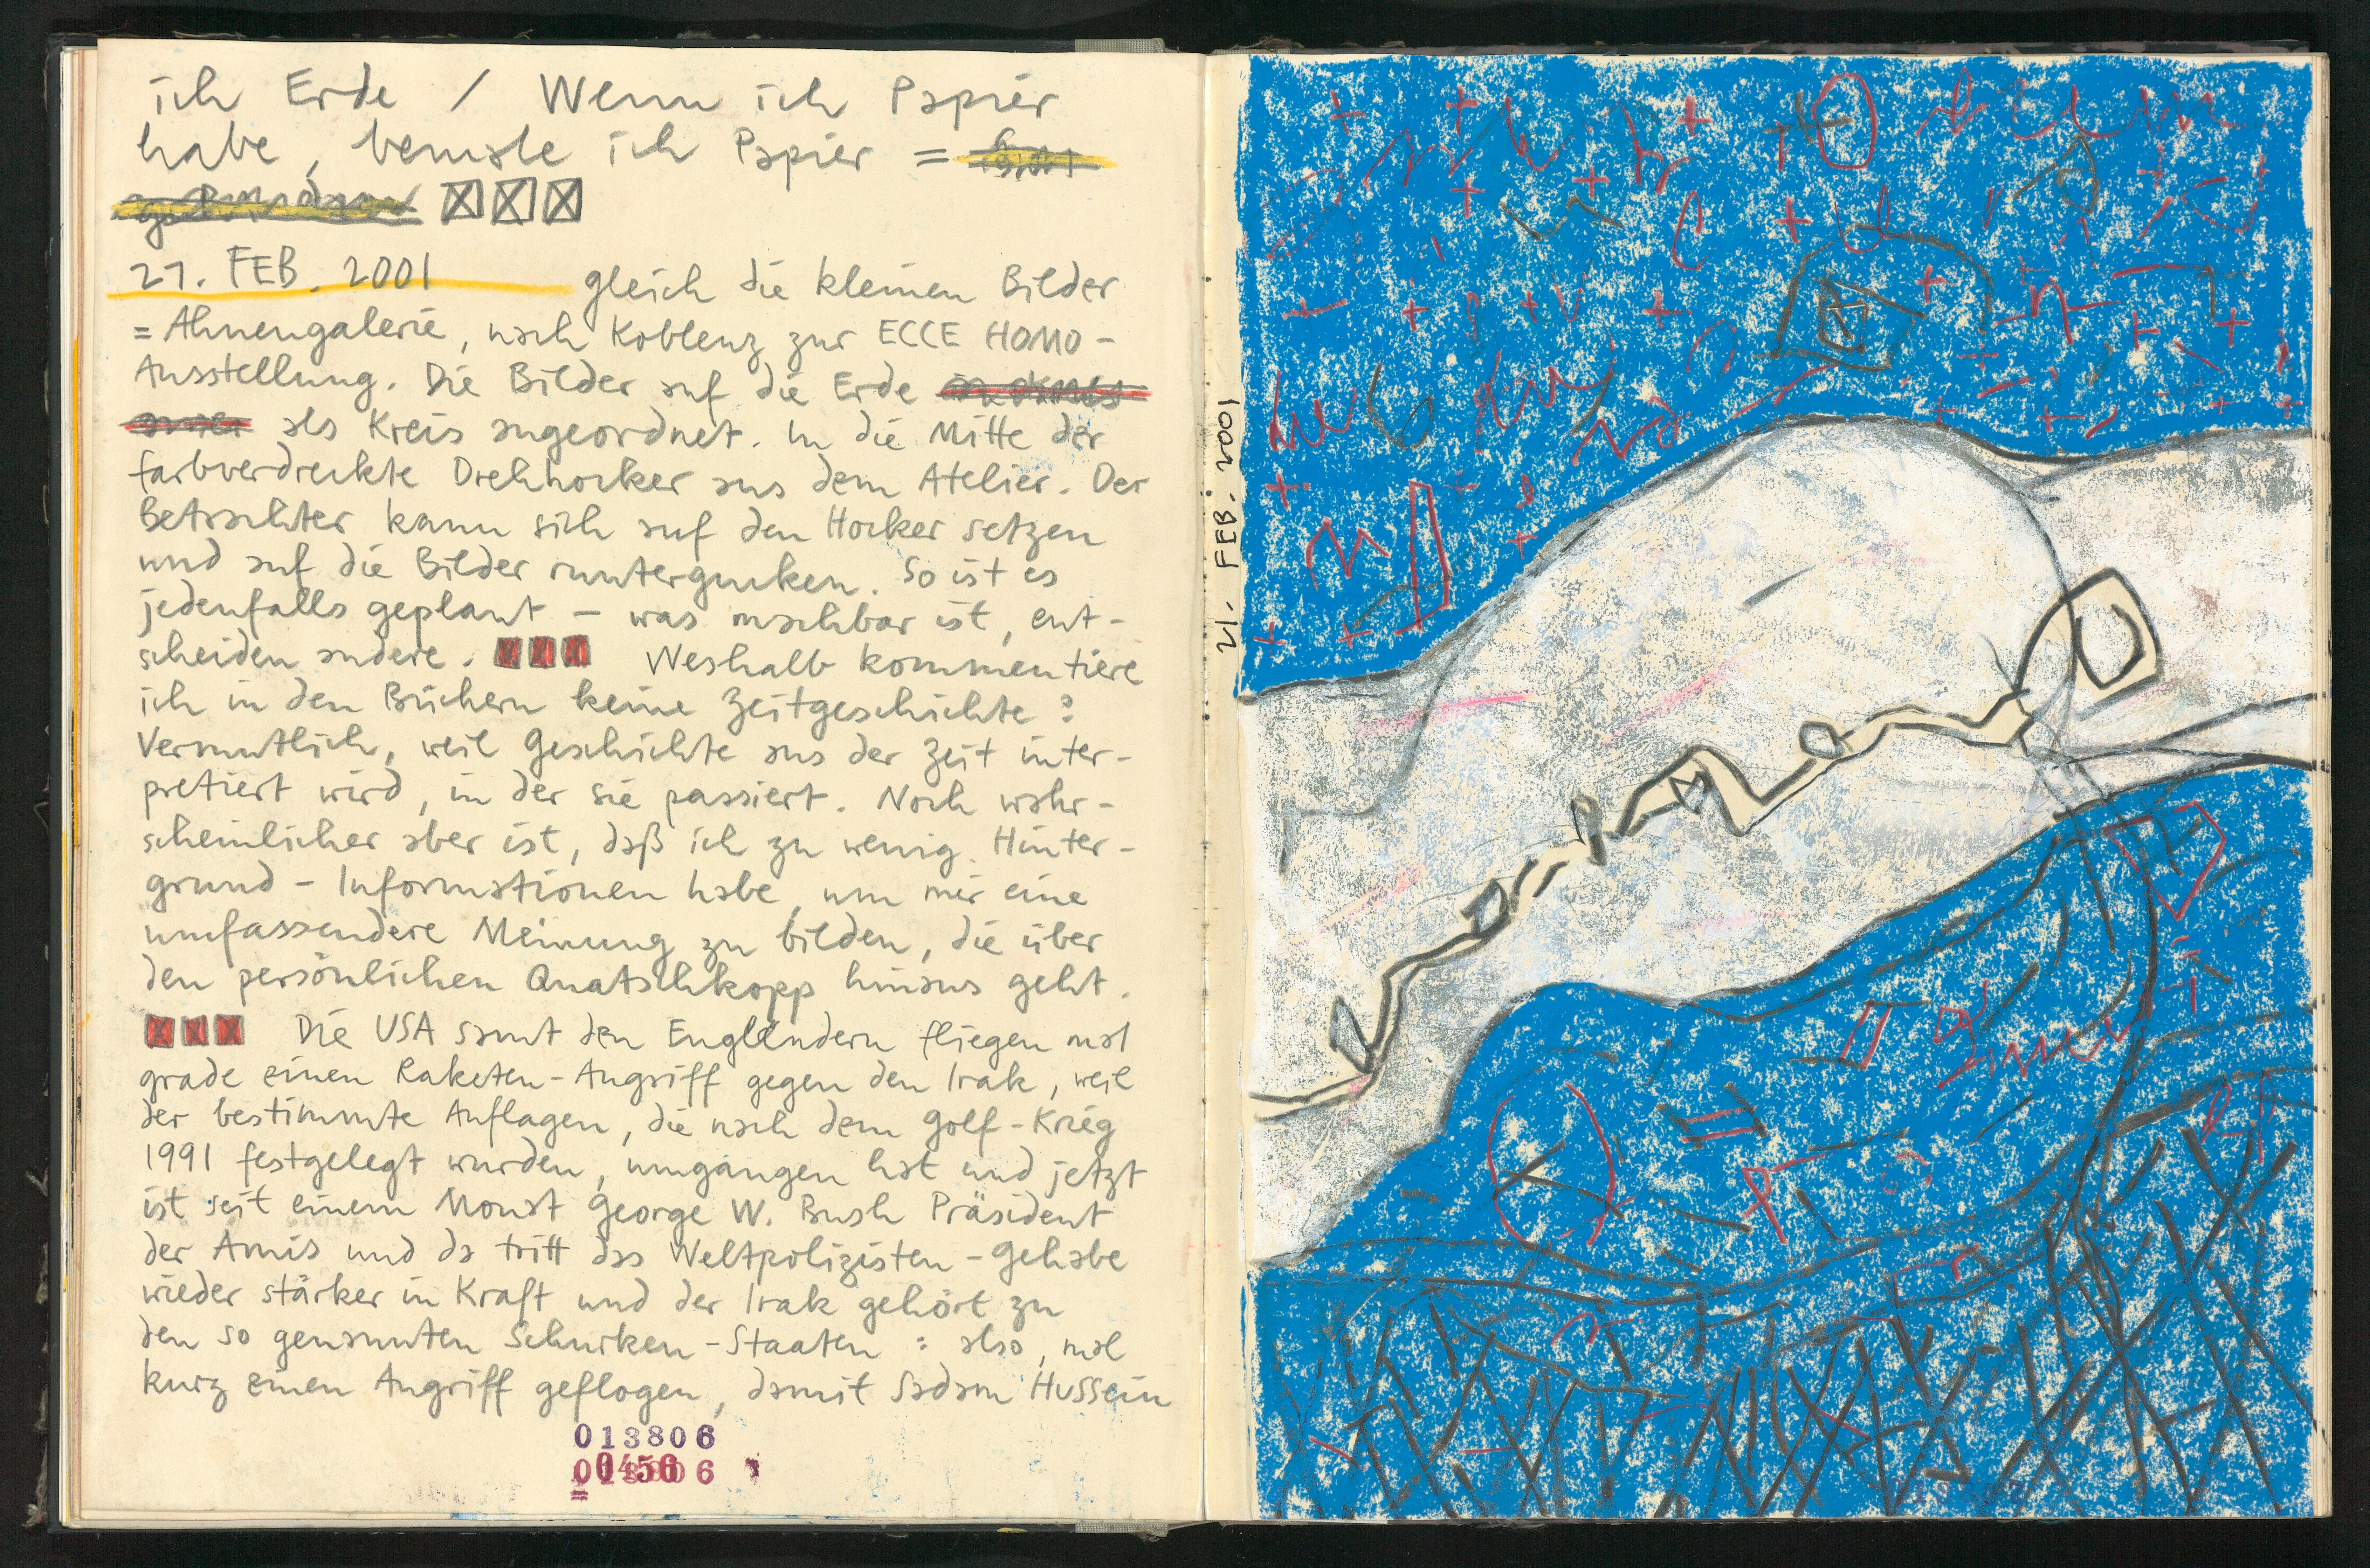 ich Erde / Wenn ich Papier
habe, bemale ich Papier =
21. FEB. 2001 gleich die kleinen Bilder
= Ahnengalerie, nach Koblenz zur ECCE HOMO-
Ausstellung. Die Bilder auf die Erde
als Kreis angeordnet. In die Mitte der
farbverdreckte Drehhocker aus dem Atelier. Der
Betrachter kann sich auf den Hocker setzen
und auf die Bilder runtergucken. So ist es
jedenfalls geplant – was machbar ist, ent-
scheiden andere. Weshalb kommentiere
ich in den Büchern keine Zeitgeschichte?
Vermutlich, weil Geschichte aus der Zeit inter-
pretiert wird, in der sie passiert. Noch wahr-
scheinlicher aber ist, daß ich zu wenig Hinter-
grund-Informationen habe, um mir eine
umfassendere Meinung zu bilden, die über
den persönlichen Quatschkopp hinaus geht.
Die USA samt den Engländern fliegen mal
grade einen Raketen-Angriff gegen den Irak, weil
der bestimmte Auflagen, die nach dem Golf-Krieg
1991 festgelegt wurden, umgangen hat und jetzt
ist seit einem Monat George W. Bush Präsident
der Amis und da tritt das Weltpolizisten-Gehabe
wieder stärker in Kraft und der Irak gehört zu
den so genannten Schurken-Staaten: also, mal
kurz einen Angriff geflogen, damit Sadam Hussein
013806
21. FEB. 2001